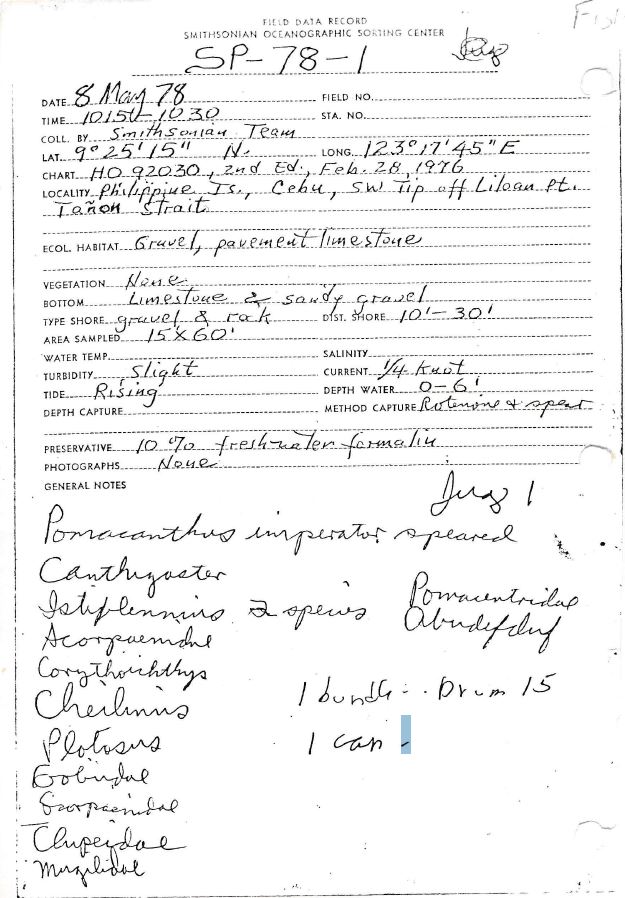 FIELD DATA RECORD
SMITHSONIAN OCEANOGRAPHIC SORTING CENTER
SP-78-1
DATE 8 May 78 FIELD NO.
TIME 1015-1030 STA. NO.
COLL. BY Smithsonian Team
LAT. 9°25'15" N. LONG. 123°17'45" E
CHART HO 92030, 2nd Ed., Feb. 28, 1976
LOCALITY Philippine Is., Cebu, SW Tip off Liloan Pt.
Tañon Strait
ECOL. HABITAT Gravel, pavement limestone
VEGETATION None
BOTTOM Limestone & sandy gravel
TYPE SHORE gravel & rock DIST. SHORE 10'-30'
AREA SAMPLED 15'X60'
WATER TEMP. SALINITY
TURBIDITY Slight CURRENT 1/4 Knot
TIDE Rising DEPTH WATER 0-6'
DEPTH CAPTURE METHOD CAPTURE Rotenone & spear
PRESERVATIVE 10% freshwater formalin
PHOTOGRAPHS None
GENERAL NOTES
Jug 1
Pomacanthus imperator speared
Canthigaster
Istiblennius 2 species Pomacentridae
Abudefduf
Corythoichthys
Cheilinus 1 bundle - Drum 15
Plotosus 1 can -
Gobiidae
Scorpaenidae
Clupeidae
Mugilidae